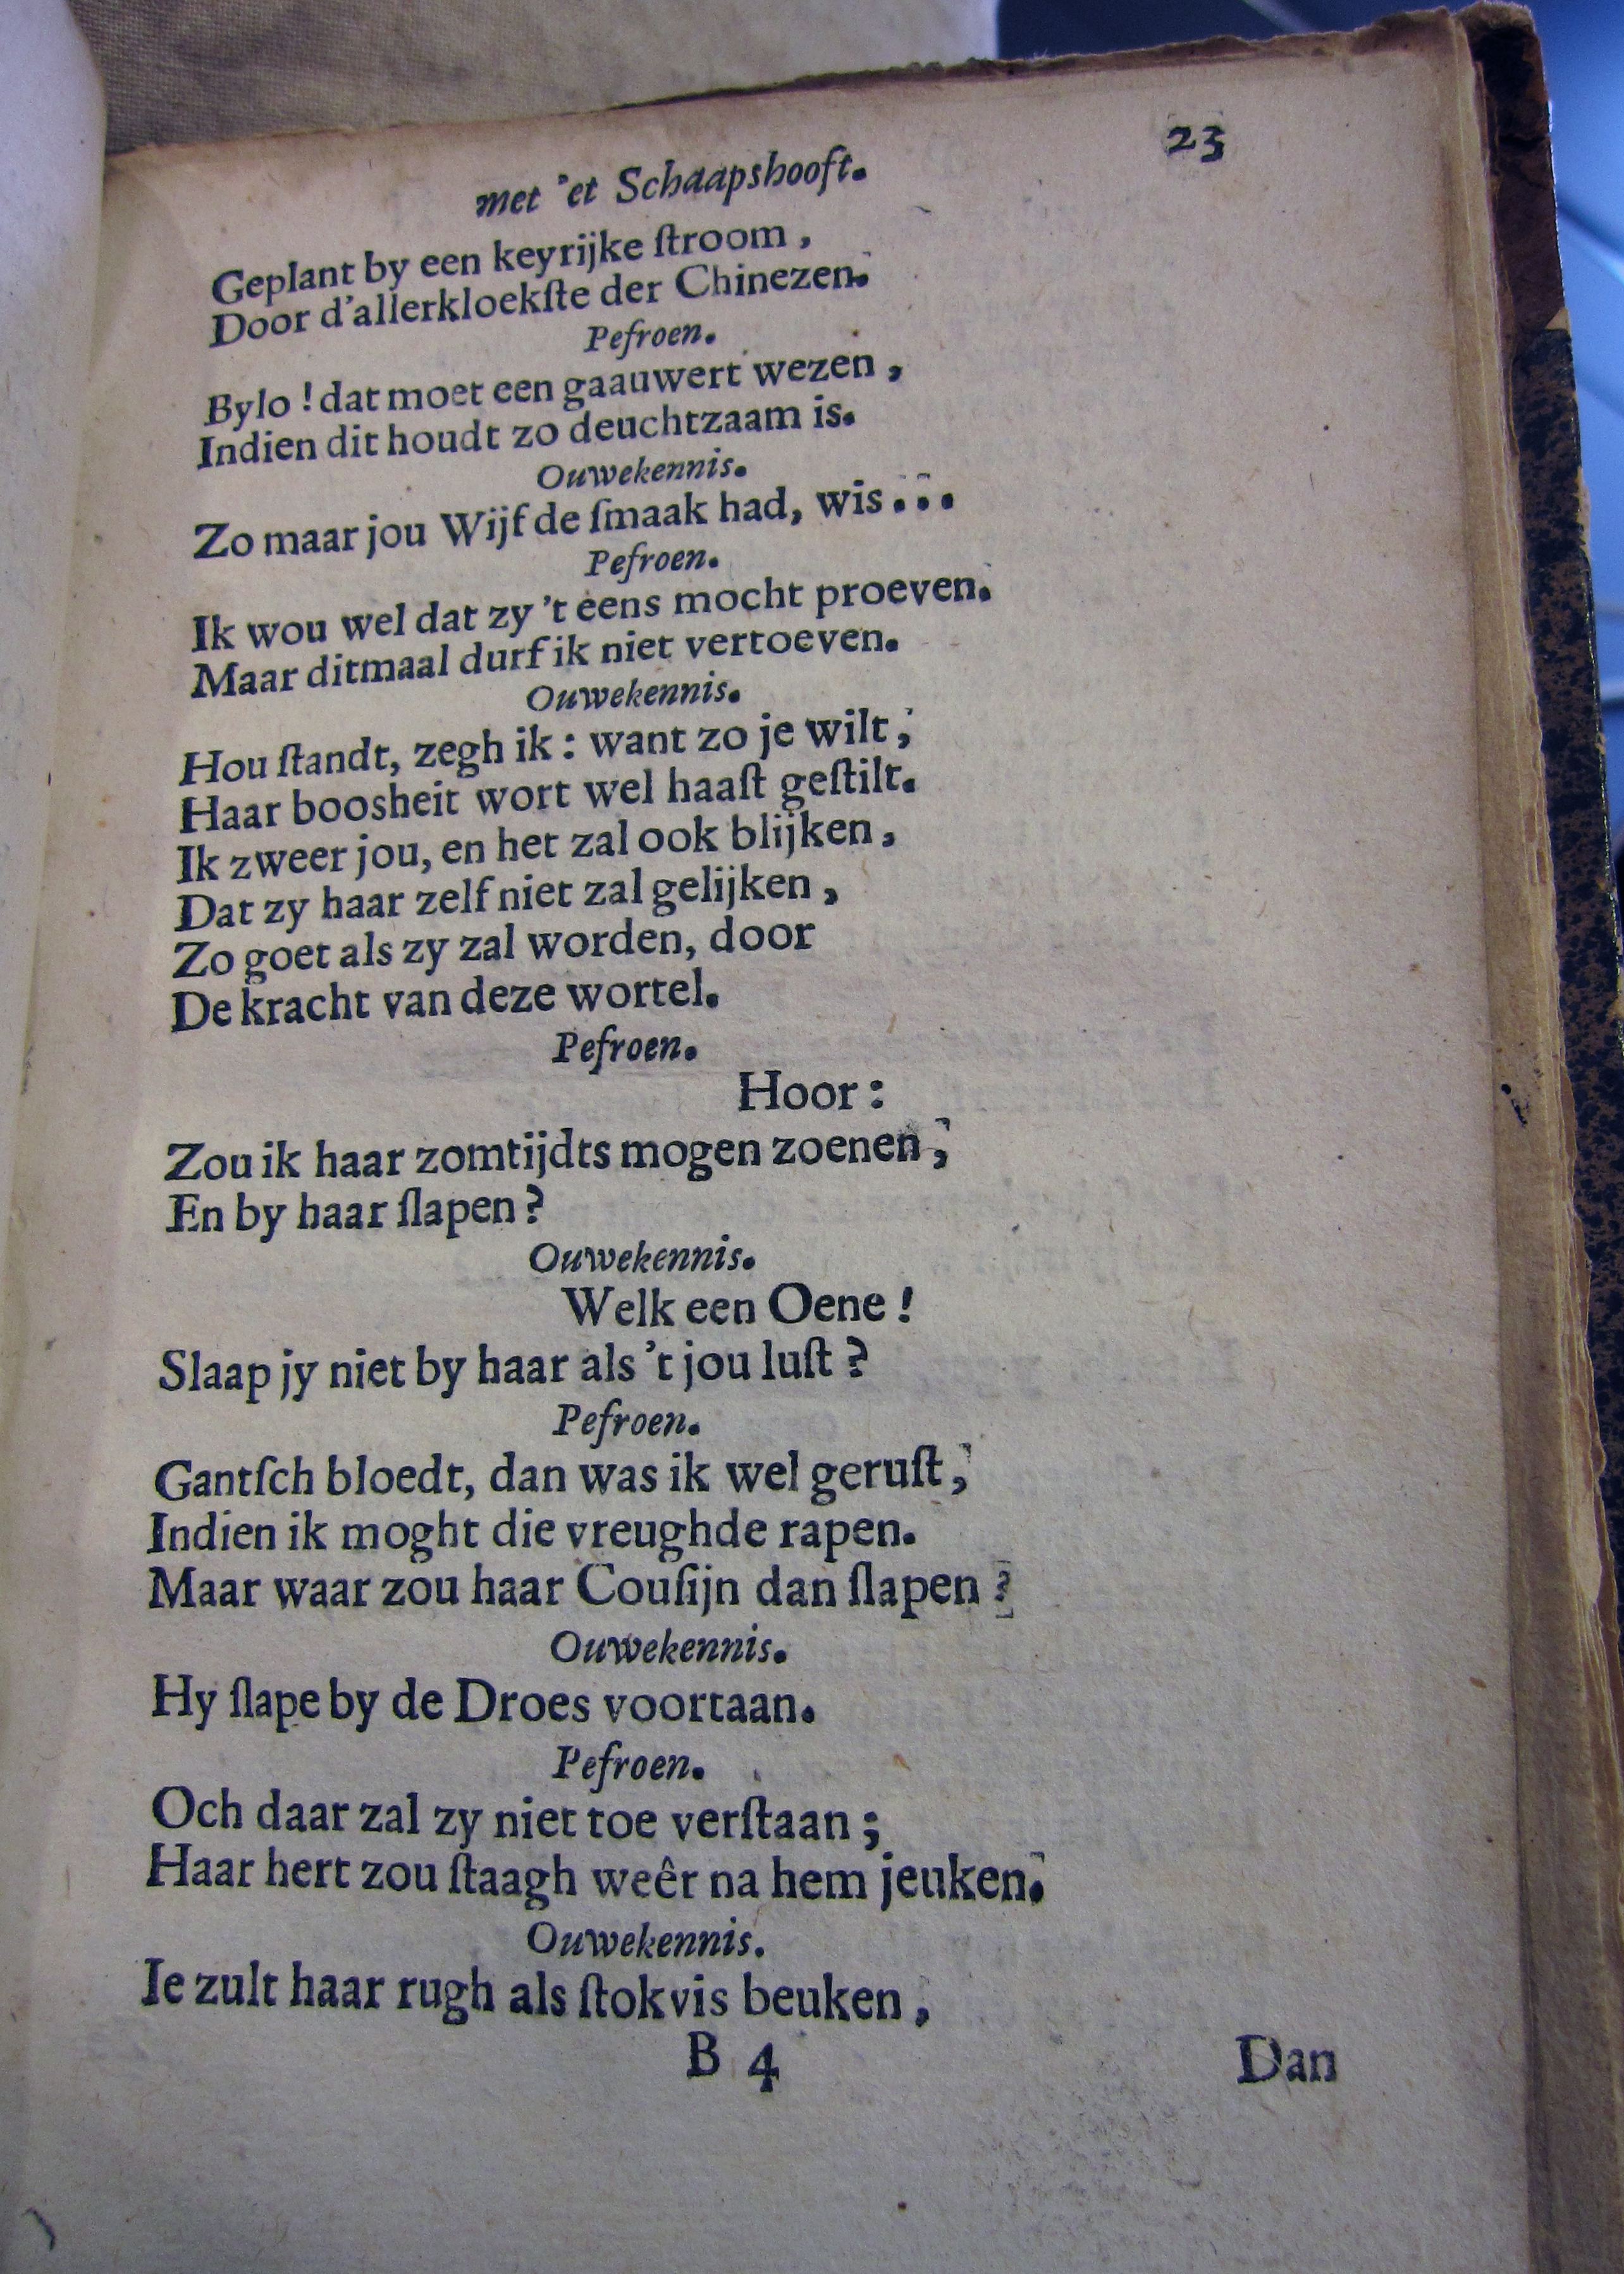 met 'et Schaapshooft. 23
Geplant by een keyrijke ſtroom,
Door d'allerkloekſte der Chinezen.
Pefroen.
Bylo! dat moet een gaauwert wezen,
Indien dit houdt zo deuchtzaam is.
Ouwekennis.
Zo maar jou Wijf de ſmaak had, wis...
Pefroen.
Ik wou wel dat zy 't eens mocht proeven.
Maar ditmaal durf ik niet vertoeven.
Ouwekennis.
Hou ſtandt, zegh ik: want zo je wilt,
Haar boosheit wort wel haaſt geſtilt.
Ik zweer jou, en het zal ook blijken,
Dat zy haar zelf niet zal gelijken,
Zo goet als zy zal worden, door
De kracht van deze wortel.
Pefroen.
Hoor:
Zou ik haar zomtijdts mogen zoenen,
En by haar ſlapen?
Ouwekennis.
Welk een Oene!
Slaap jy niet by haar als 't jou luſt?
Pefroen.
Gantſch bloedt, dan was ik wel geruſt,
Indien ik moght die vreughde rapen.
Maar waar zou haar Couſijn dan ſlapen?
Ouwekennis.
Hy ſlape by de Droes voortaan.
Pefroen.
Och daar zal zy niet toe verſtaan;
Haar hert zou ſtaagh weêr na hem jeuken.
Ouwekennis.
Ie zult haar rugh als ſtokvis beuken,
B 4 Dan